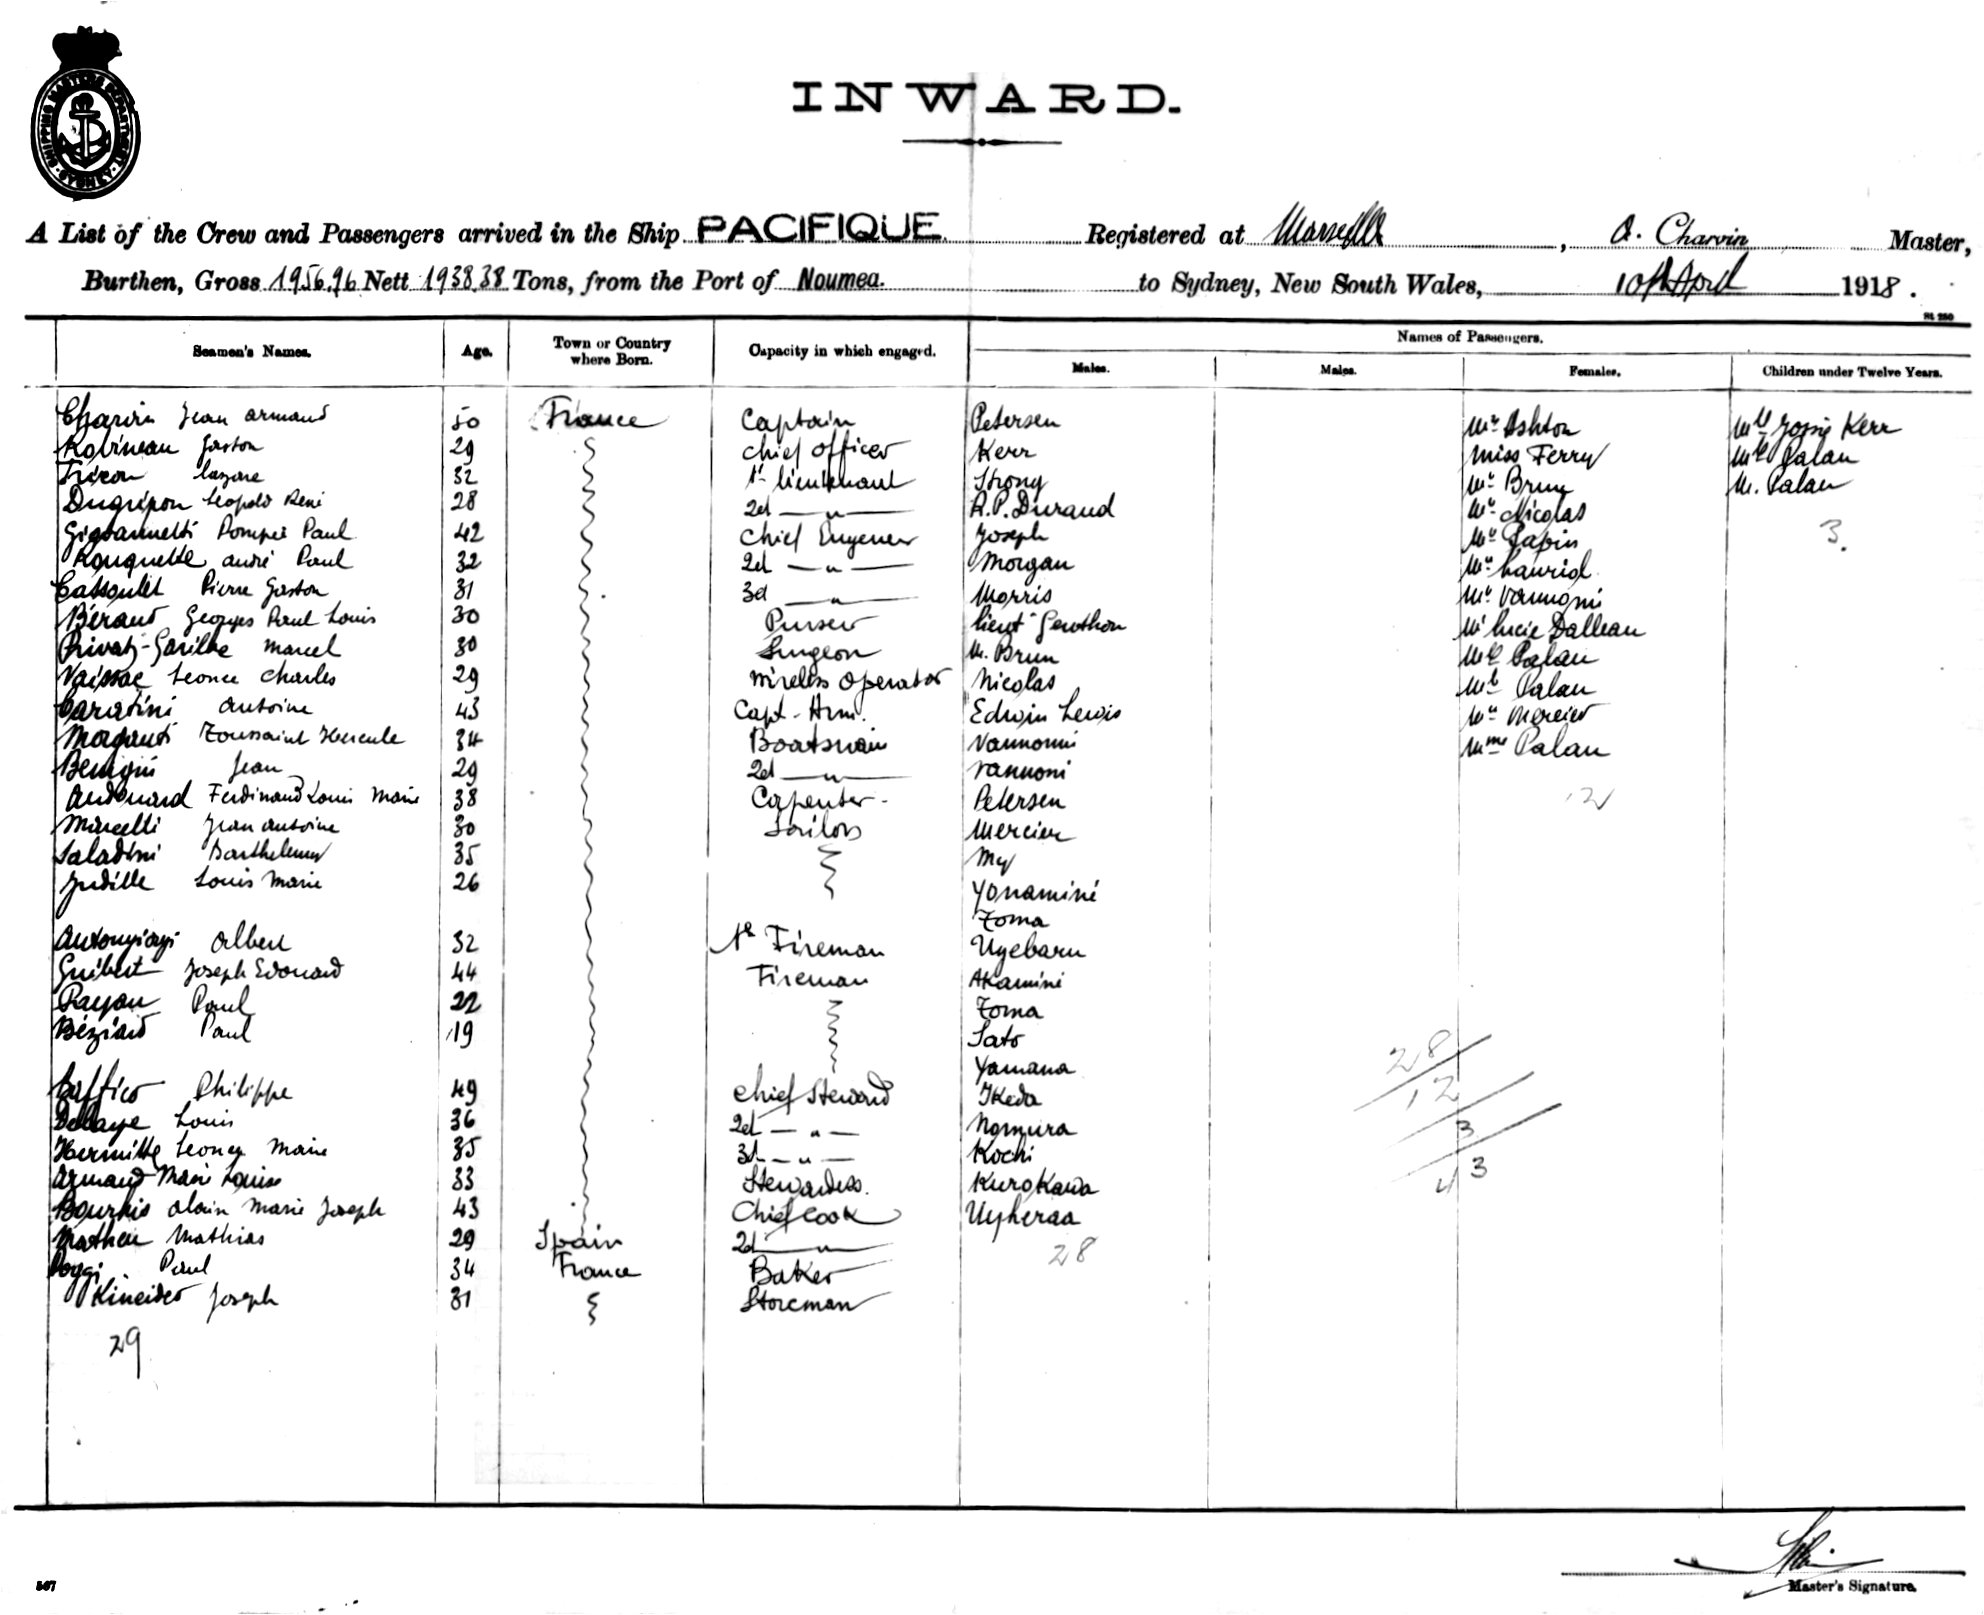 SHIPPING MASTERS DEPARTMENT
SYDNEY
INWARD.
A List of the Crew and Passengers arrived in the Ship PACIFIQUE Registered at Marseille, A. Charvin Master,
Burthen, Gross 1956.96 Nett 1938.38 Tons, from the Port of Noumea. to Sydney, New South Wales, 10th April 1918.
St 280
Seamen's Names. Age. Town or Country where Born. Capacity in which engaged. Names of Passengers.
Males. Males. Females. Children under Twelve Years.
Charvin Jean Armand 50 France Captain Petersen Mme Ashton Mlle Josie Kerr
Robineau Gaston 29 Chief Officer Kerr Miss Ferry Mlle Palau
Lazare 32 1st lieutenant Strong Mme Brun M. Palau
Dugrépon Léopold René 28 2d — " — R.P. Durand Mme Nicolas
Giovannetti Pompée Paul 42 Chief Engeneer Joseph Mme Papin 3.
Rouquette André Paul 32 2d — " — Morgan Mme
Cassoulet Pierre Gaston 31 3d — " — Morris Mme Vannoni
Béraud Georges Paul Louis 30 Purser Lieut Gewthon Mme Lucie Dalleau
Privat-Garilhe Marcel 30 Surgeon M. Brun Mlle Palau
Vaissac Leonce Charles 29 Wireless Operator Nicolas Mlle Palau
Caratini Antoine 43 Capt-Arm. Edwin Lewis Mme Mercier
Morganti Toussaint Hercule 34 Boatswain Vannonni Mme Palau
Benigni Jean 29 2d — " — Vannoni
Audouard Ferdinand Louis Marie 38 Capenter - Petersen 12
Mincelli Jean Antoine 30 Sailors Mercier
Saladini Barthelemy 35 My
Judille Louis Marie 26 Yonaminé
Toma
Antongiorgi Albert 32 1st Fireman Uyebaru
Guibert Joseph Edouard 44 Fireman Akaminé
Rayau Paul 22 Toma
Béziard Paul 19 Sato 28
Yamana 12
Baffico Philippe 49 Chief Steward Ikeda
Delaye Louis 36 2d — " — Nomura 3
Hermitte Leonce Marie 35 3d — " — Kochi
Armand Marie Louise 33 Stewardess. Kurokawa 43
Bourhis Alain Marie Joseph 43 Chief Cook Uyheraa
Matheu Mathias 29 Spain 2d — " — 28
Poggi Paul 34 France Baker
Kineider Joseph 31 Storeman
29
Master's Signature.
567